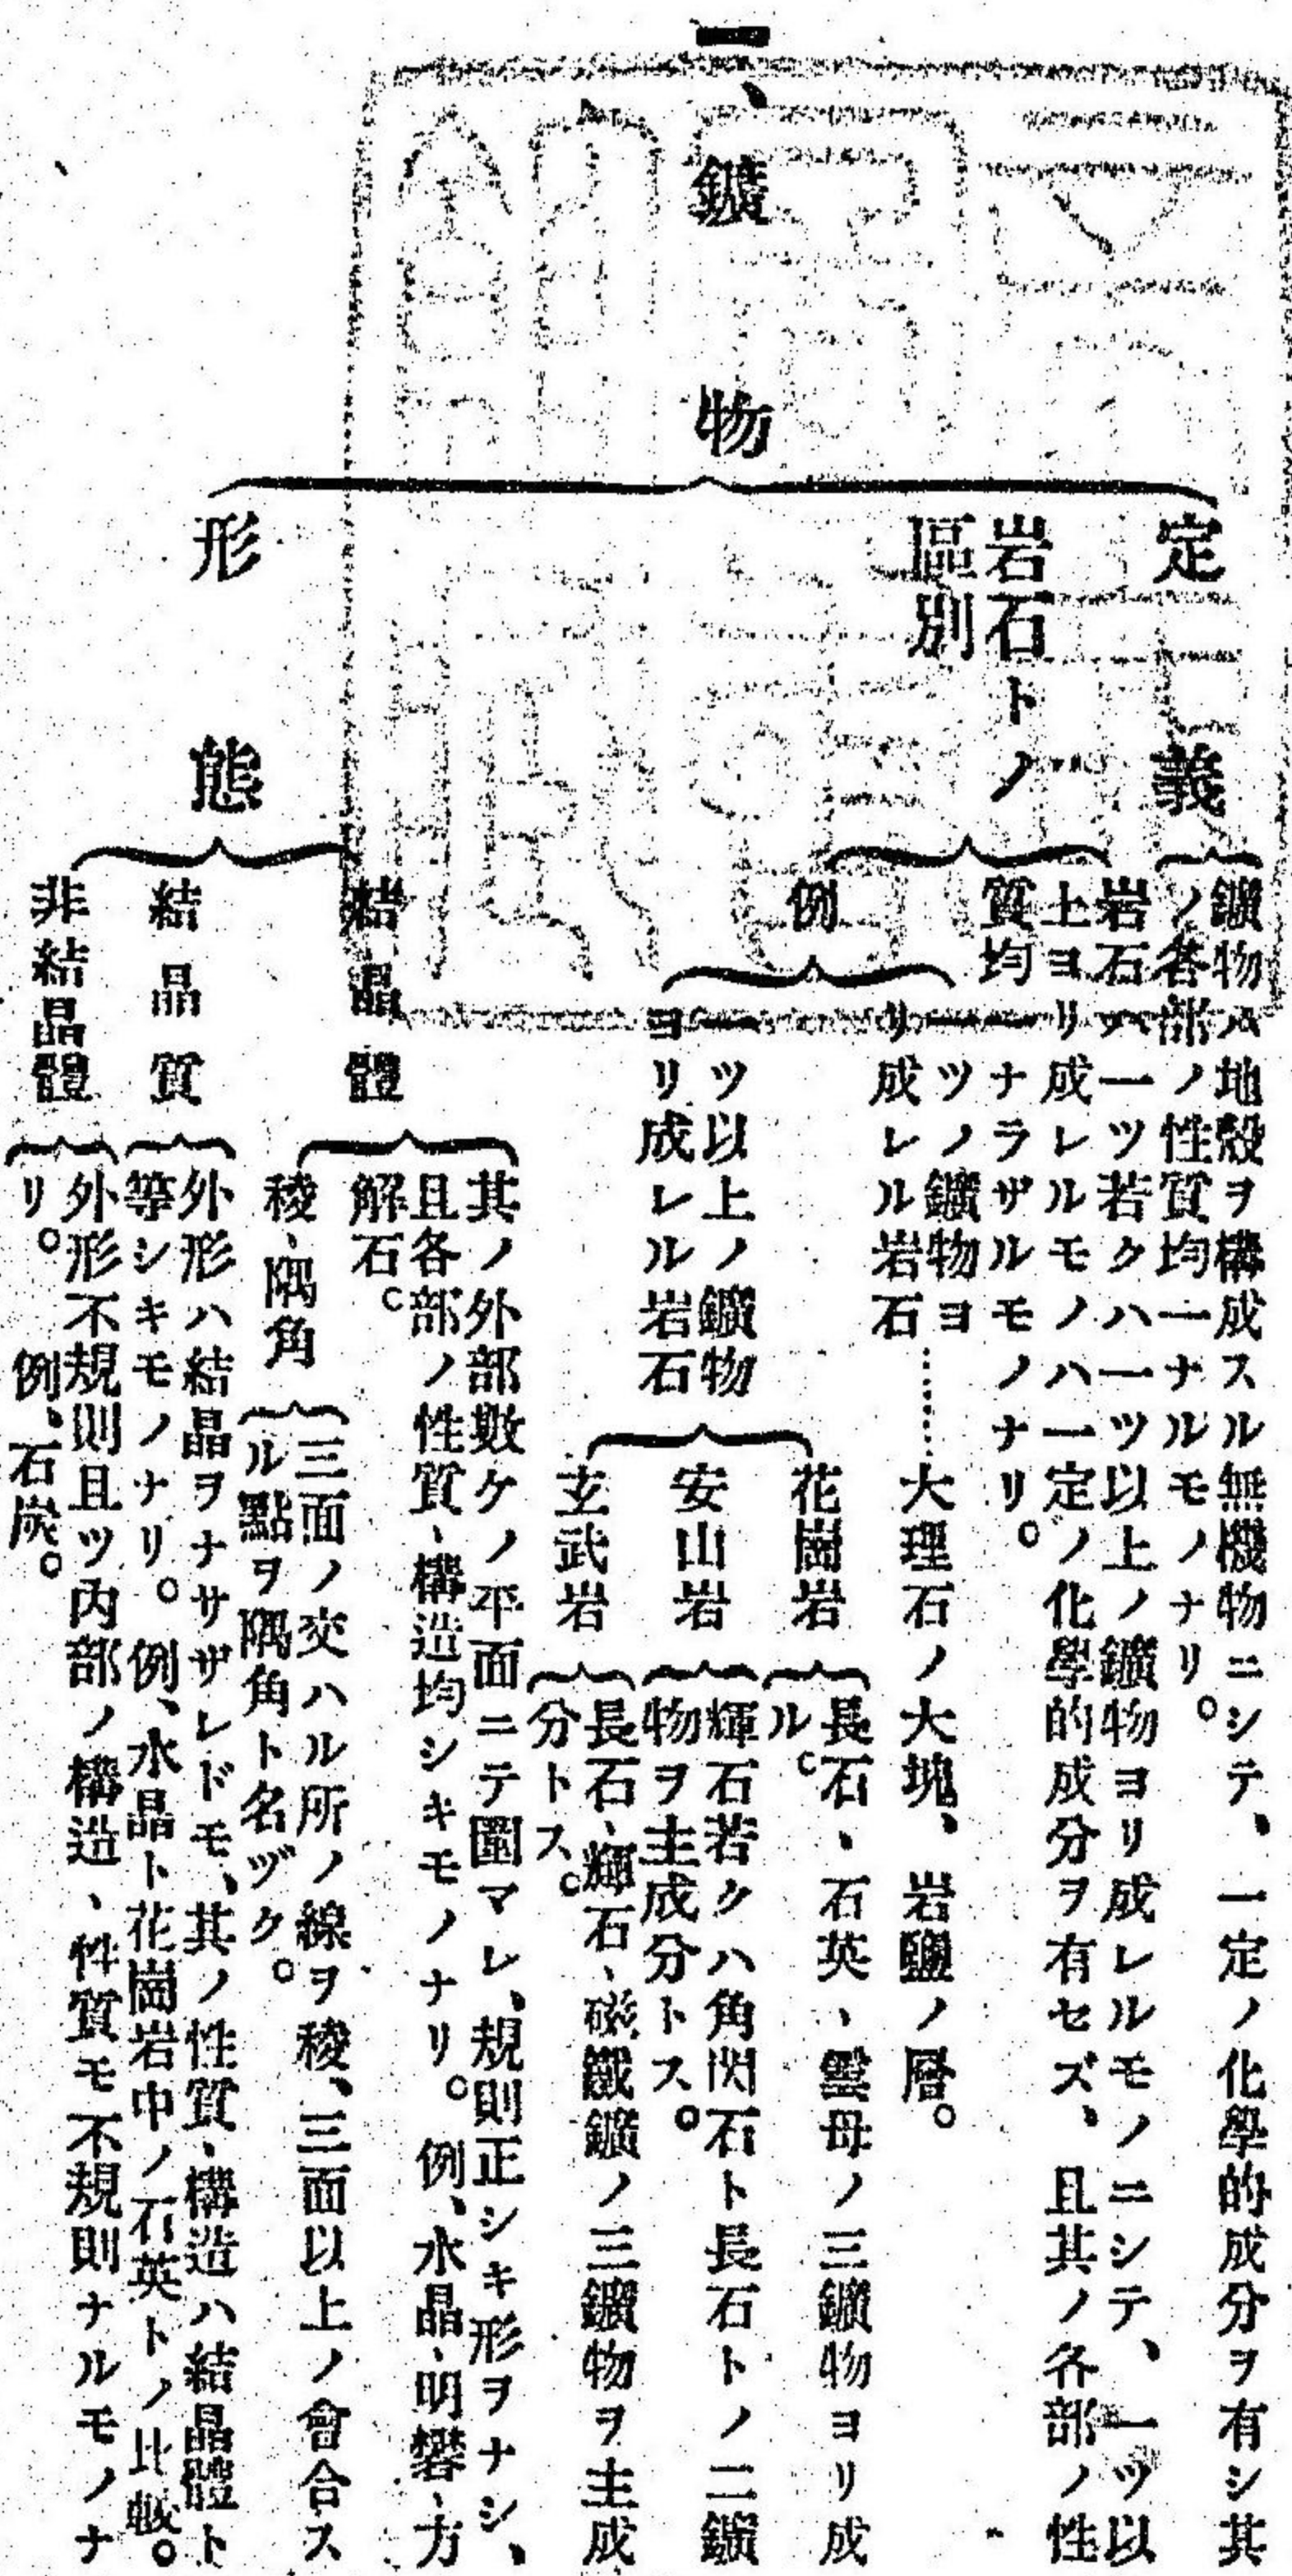 一、鑛物
定義
鑛物ハ地殼ヲ構成スル無機物ニシテ、一定ノ化學的成分ヲ有シ其
ノ各部ノ性質均一ナルモノナリ。
岩石トノ
區別
岩石ハ一ツ若クハ一ツ以上ノ鑛物ヨリ成レルモノニシテ、一ツ以
上ヨリ成レルモノハ一定ノ化學的成分ヲ有セズ、且其ノ各部ノ性
質均一ナラザルモノナリ。
例
一ツノ鑛物ヨ
リ成レル岩石……大理石ノ大塊、岩鹽ノ層。
一ツ以上ノ鑛物
ヨリ成レル岩石
花崗岩
長石、石英、雲母ノ三鑛物ヨリ成
ル。
安山岩
輝石若クハ角閃石ト長石トノ二鑛
物ヲ主成分トス。
玄武岩
長石、輝石、磁鐵鑛ノ三鑛物ヲ主成
分トス。
形態
結晶體
其ノ外部數ケノ平面ニテ圍マレ、規則正シキ形ヲナシ、
且各部ノ性質、構造均シキモノナリ。例、水晶、明礬、方
解石。
稜、隅角
三面ノ交ハル所ノ線ヲ稜、三面以上ノ會合ス
ル點ヲ隅角ト名ヅク。
結晶質
外形ハ結晶ヲナサザレドモ、其ノ性質、構造ハ結晶體ト
等シキモノナリ。例、水晶ト花崗岩中ノ石英トノ比較。
非結晶體
外形不規則且ツ内部ノ構造、性質モ不規則ナルモノナ
リ。例、石炭。